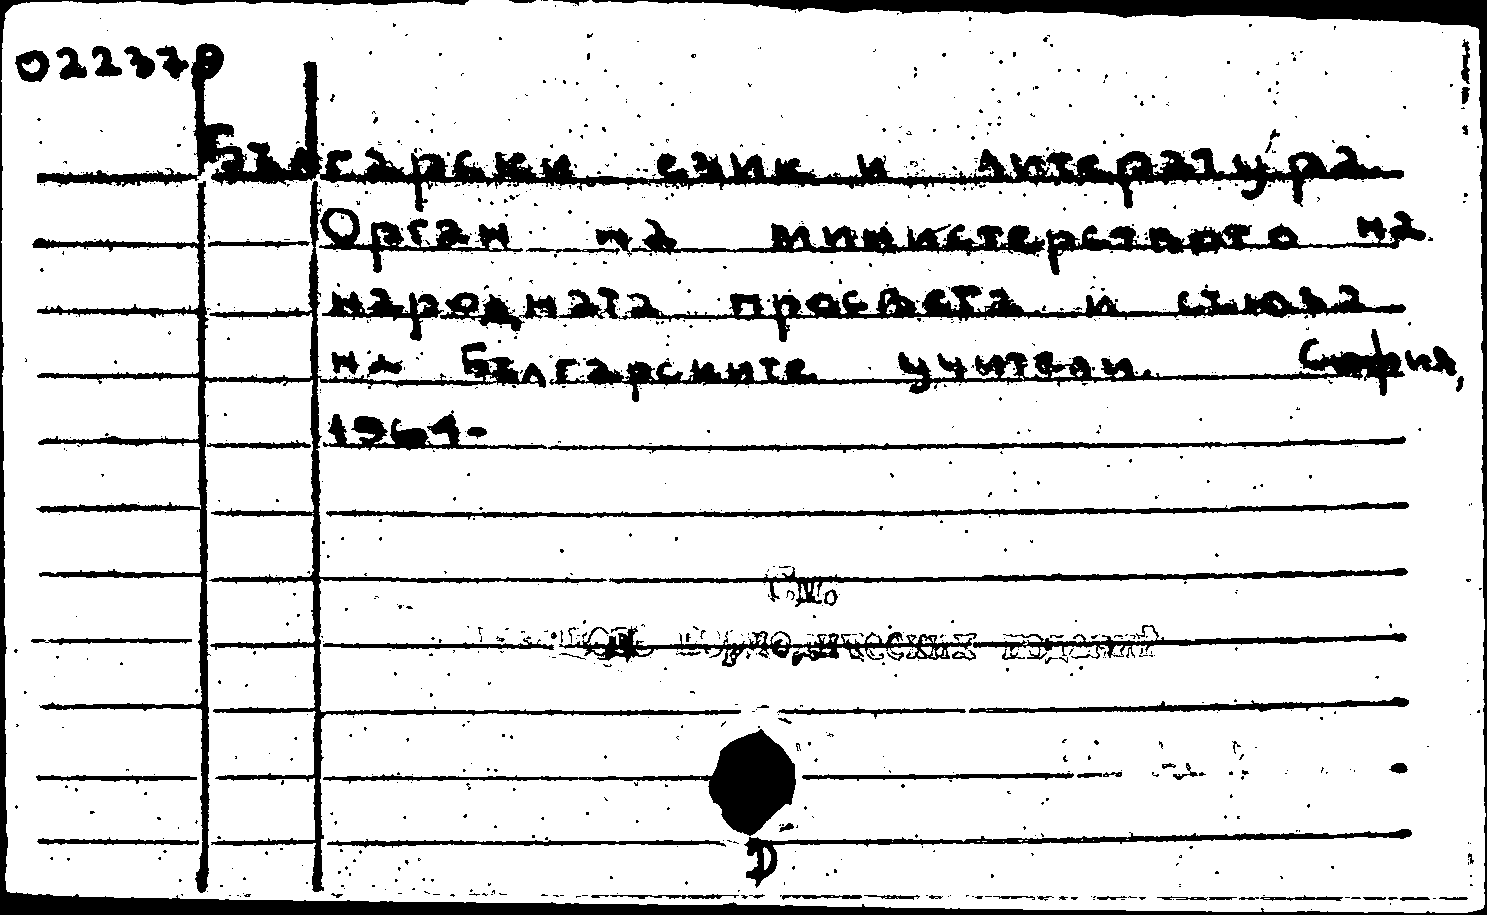 022379
Български език и литература
Орган на министерството на
народната просвета и съюза
на българските учители. София,
1964-
периодических изданий
D